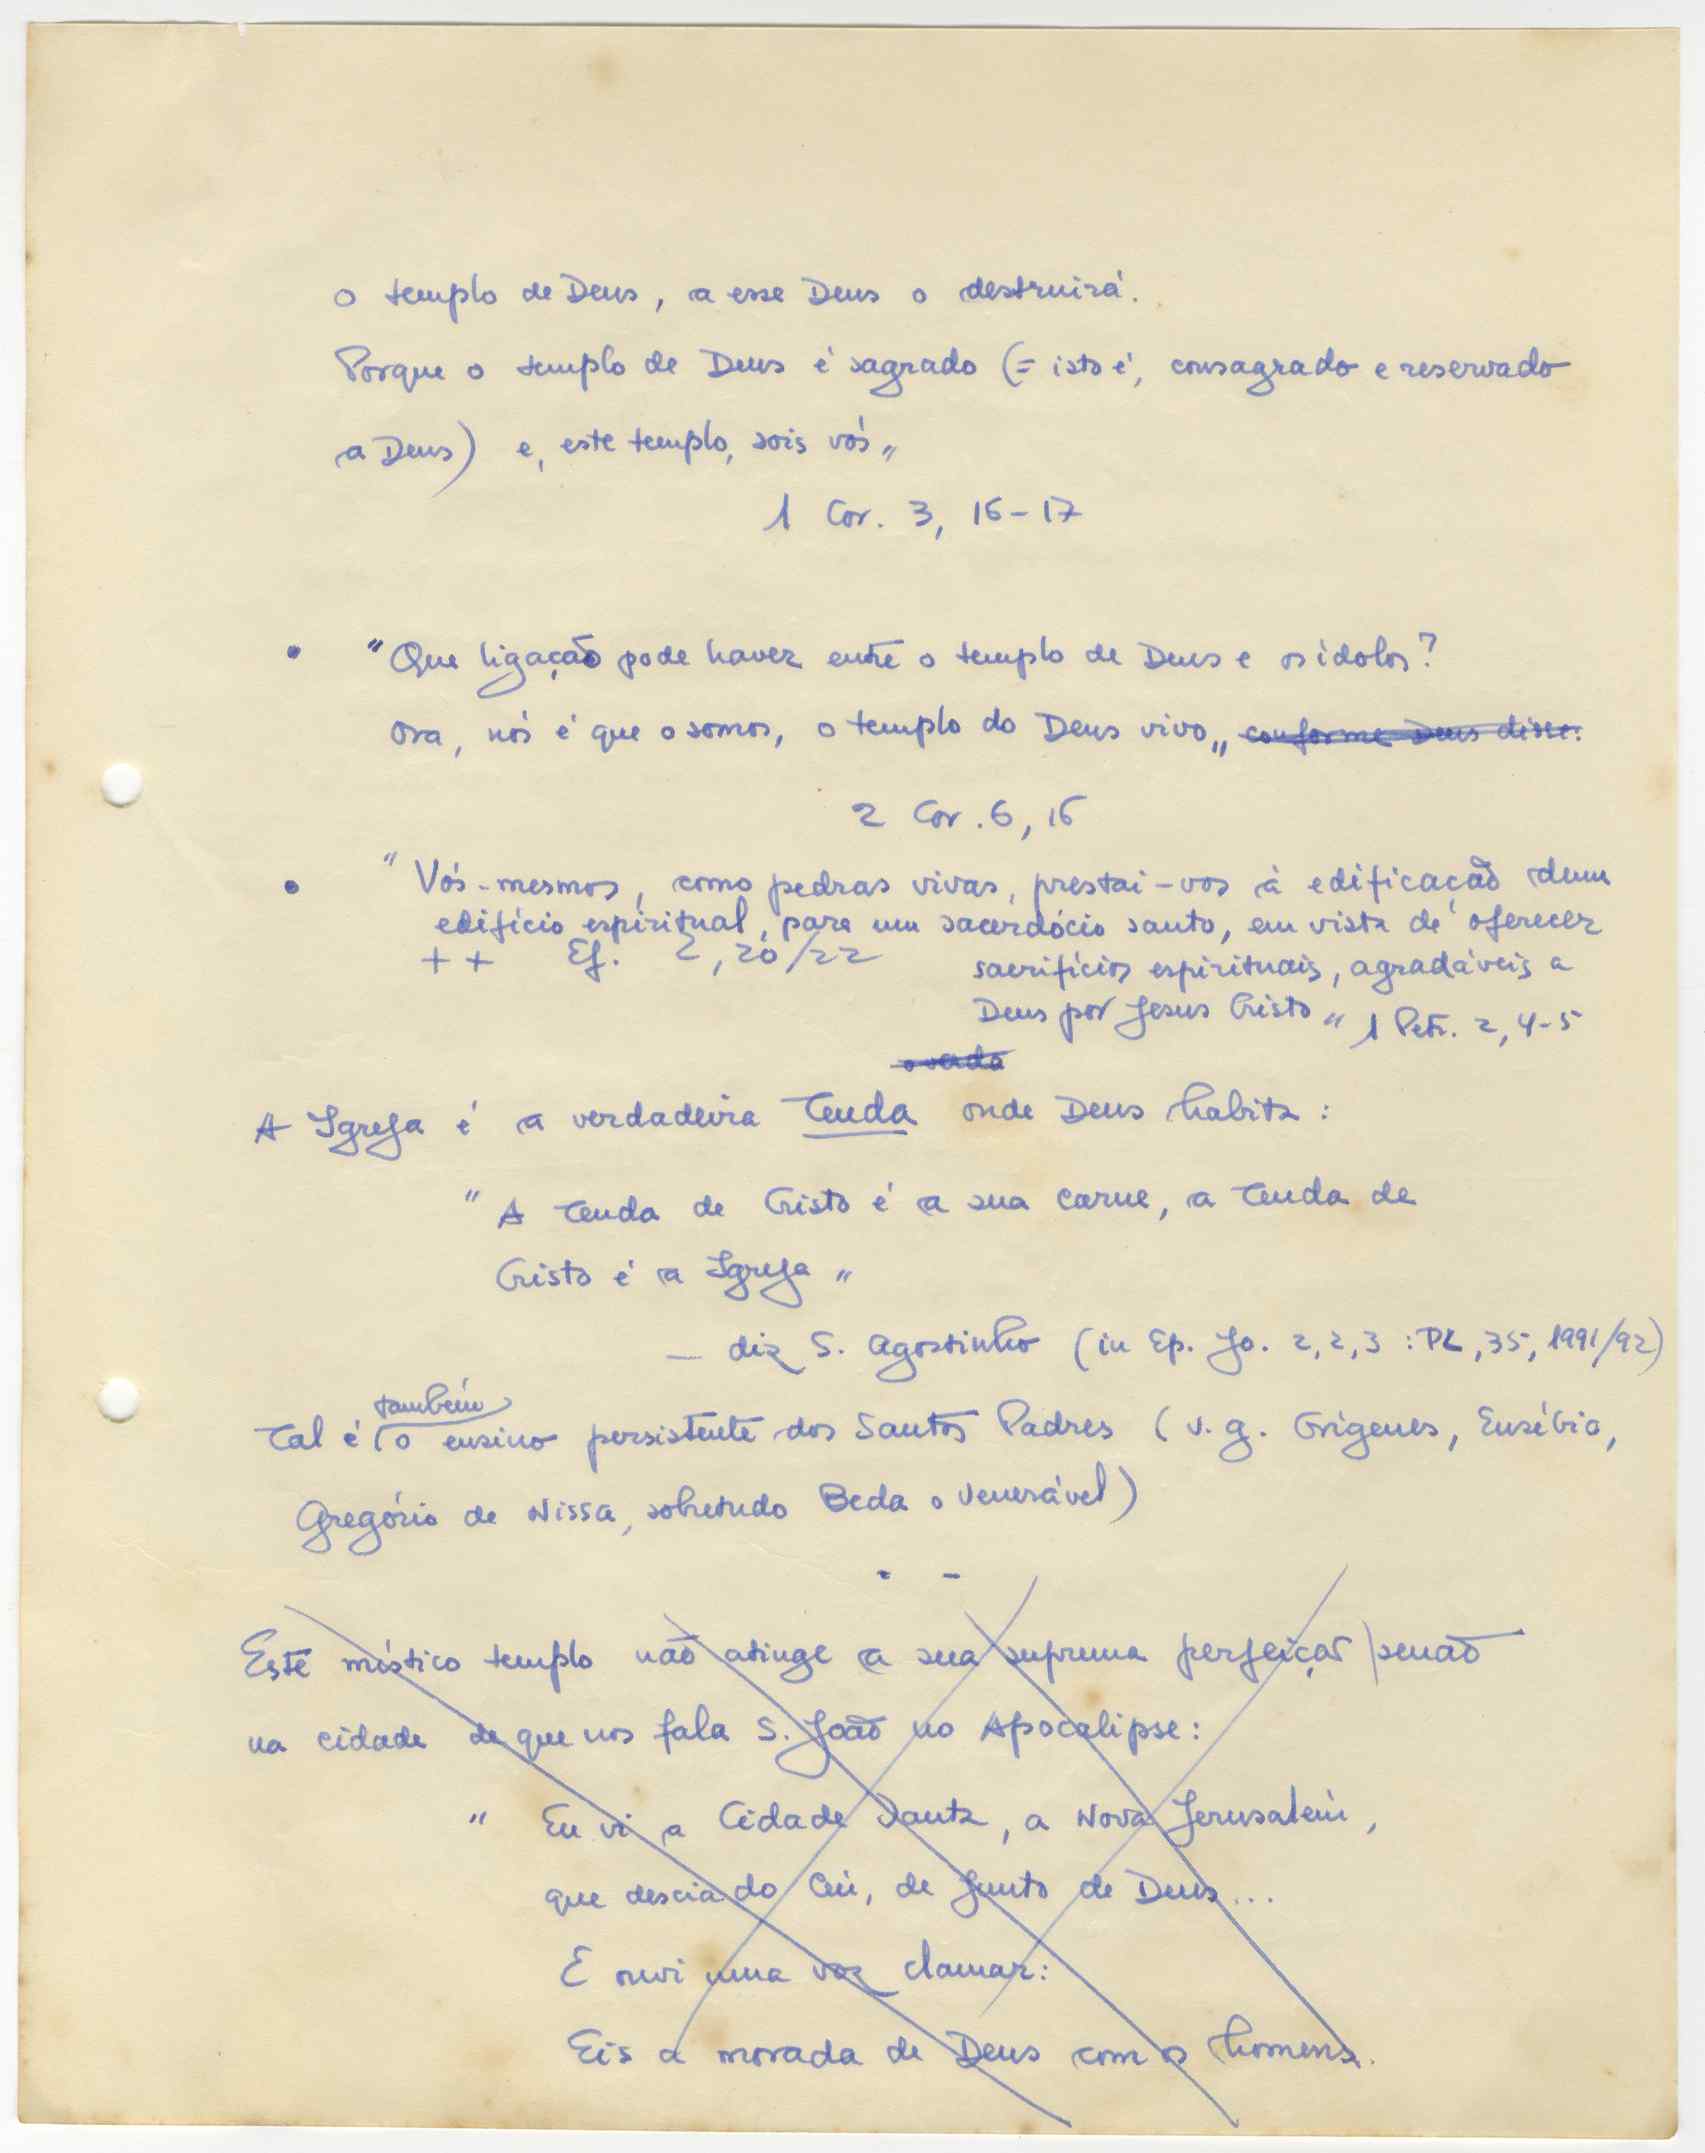 o templo de Deus, a esse Deus o destruirá.
Porque o templo de Deus é sagrado (= isto é, consagrado e reservado
a Deus) e, este templo, sois vós"
1 Cor. 3, 16-17
• "Que ligação pode haver entre o templo de Deus e os ídolos?
Ora, nós é que o somos, o templo do Deus vivo" conforme Deus disse:
2 Cor. 6, 16
• "Vós-mesmos, como pedras vivas, prestai-vos à edificação dum
edifício espiritual, para um sacerdócio santo, em vista de oferecer
++ Ef. 2, 20/22
sacrifícios espirituais, agradáveis a
Deus por Jesus Cristo" 1 Petr. 2, 4-5
A Igreja é a verdadeira Tenda onde Deus habita:
"A Tenda de Cristo é a sua carne, a Tenda de
Cristo é a Igreja"
— diz S. Agostinho (in Ep. Jo. 2, 2, 3 : PL, 35, 1991/92)
também
Tal é o ensino persistente dos Santos Padres (v. g. Orígenes, Eusébio,
Gregório de Nissa, sobretudo Beda o Venerável)
Este místico templo não atinge a sua suprema perfeição senão
na cidade de que nos fala S. João no Apocalipse:
" Eu vi a Cidade Santa, a Nova Jerusalém,
que descia do Céu, de junto de Deus...
E ouvi uma voz clamar:
Eis a morada de Deus com os homens.